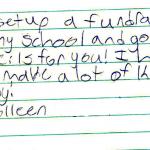 setup a fundra
my school and go
for you! I
make a lot of k
by:
olleen